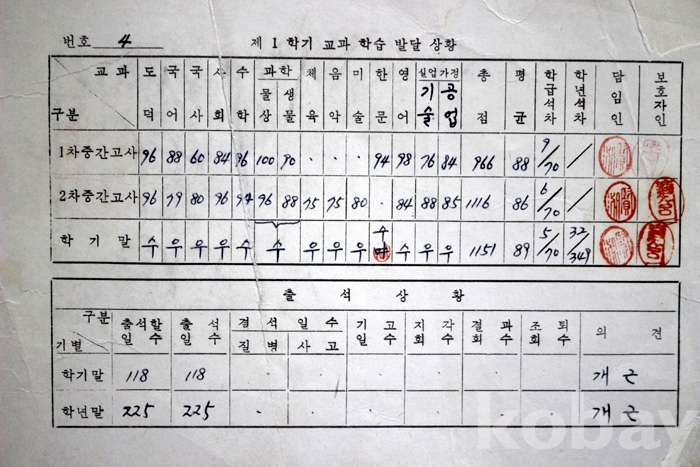 번호 4 제 1 학기 교과 학습 발달 상황
교과 도 국 국 사 수 과학 체 음 미 한 영 실업가정 총 평 학급석차 학년석차 담임인 보호자인
구분 덕 어 사 회 학 물상 생물 육 악 술 문 어 기술 공업 점 균
1차중간고사 96 88 60 84 96 100 90 · · · 94 98 76 84 966 88 9/70 /
2차중간고사 96 79 80 96 94 96 88 75 75 80 · 84 88 85 1116 86 6/70 /
학기말 수 우 우 수 수 수 우 우 우 수 수 우 우 1151 89 5/70 32/349
출석상황
구분 출석할 출석 결석일수 기고 지각 결과 조퇴 의견
기별 일수 일수 질병 사고 일수 회수 회수 회수
학기말 118 118 · · · · · · 개근
학년말 225 225 · · · · · · 개근
kobay